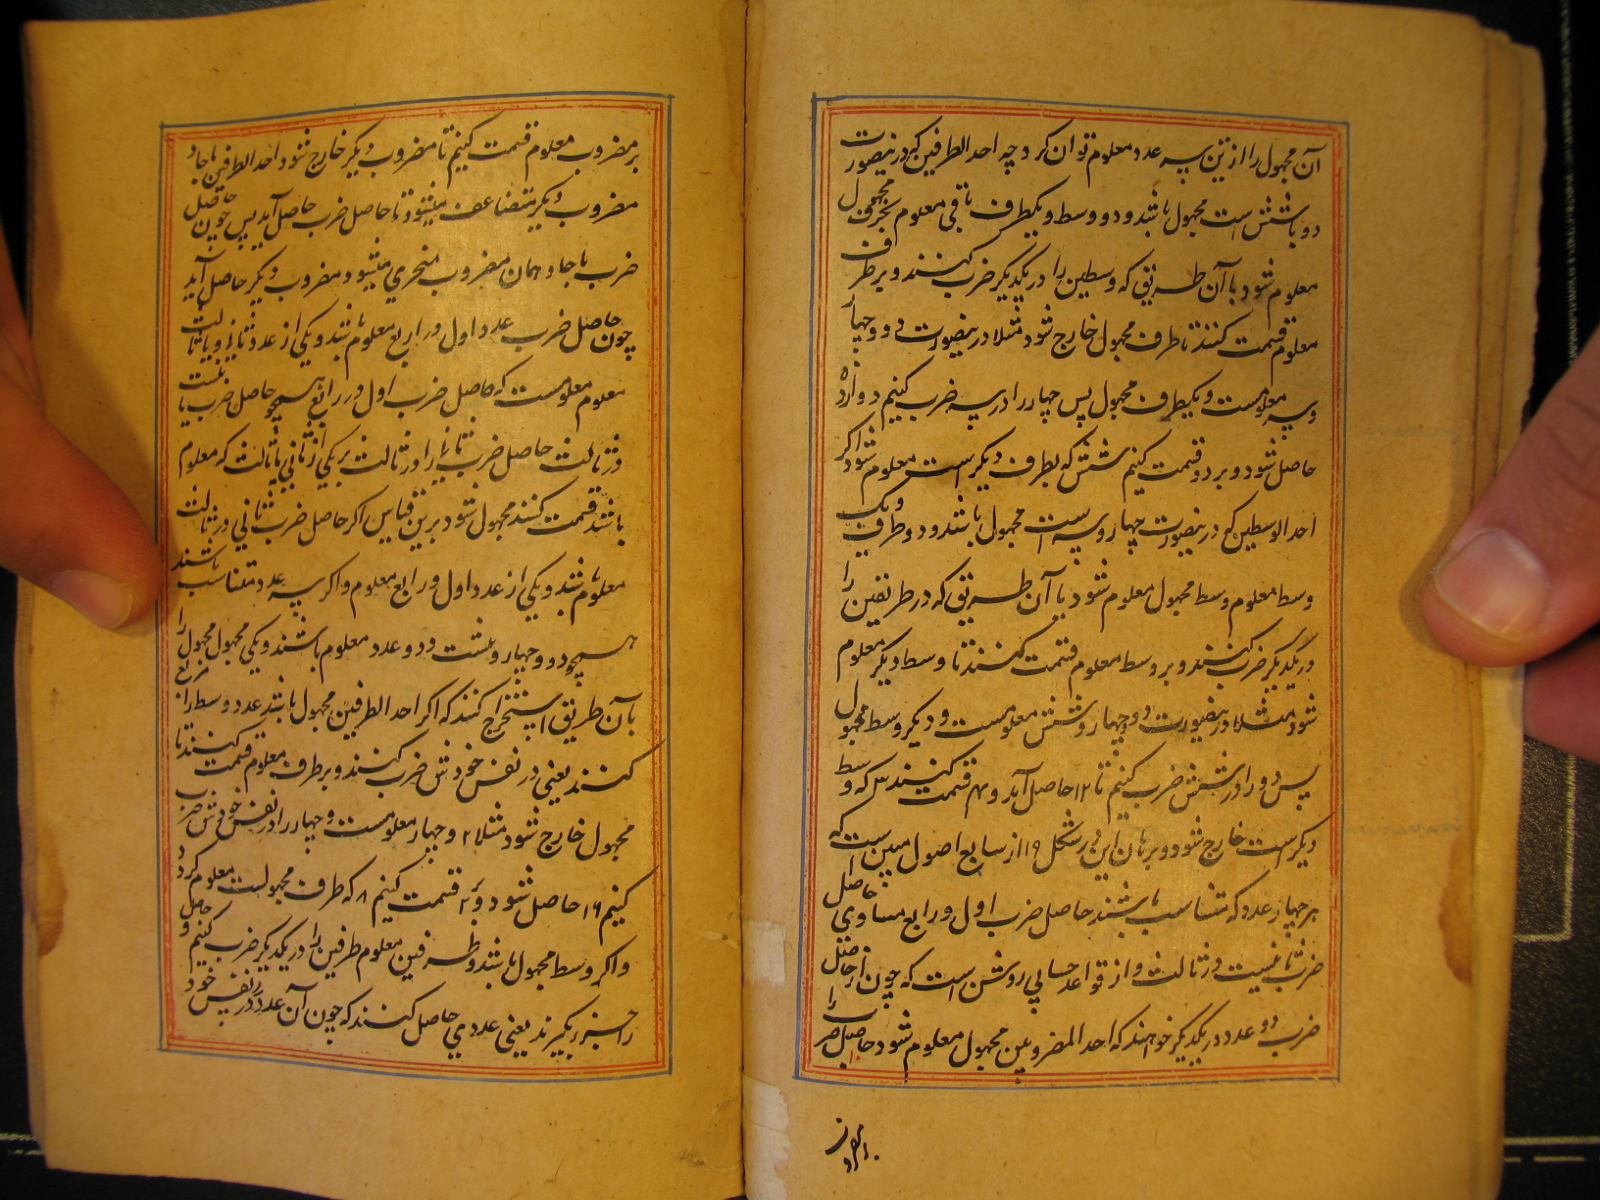 آن مجهول را ازین سه عدد معلوم توان کرد چه احد الطرفین که درینصورت
دو یا شش است مجهول باشد و دو وسط و یکطرف باقی معلوم بود مجهول
معلوم شود بآن طریق که وسطین را در یکدیگر ضرب کنند و بر طرف
معلوم قسمت کنند تا طرف مجهول خارج شود مثلا درینصورت دو و چهار
و سه معلومست و یکطرف مجهول پس چهار را در سه ضرب کنیم دوازده
حاصل شود و بر دو قسمت کنیم شش که طرف دیگر است معلوم شود و اگر
احد الوسطین که درینصورت چهار و سه است مجهول باشد و دو طرف و یک
وسط معلوم وسط مجهول معلوم شود بآن طریق که طرفین را
در یکدیگر ضرب کنند و بر وسط معلوم قسمت کنند تا وسط دیگر معلوم
شود مثلا درینصورت دو و چهار و شش معلومست و دیگر وسط مجهول
پس دو را در شش ضرب کنیم تا ۱۲ حاصل آید و بر ۴ قسمت کنند که وسط
دیگرست خارج شود و برهان این در شکل ۱۹ از سابع اصول مبین است که
هر چهار عدد که متناسب باشند حاصل ضرب اول و رابع مساوی حاصل
ضرب ثانیست در ثالث و از قواعد حسابی روشن است که چون از حاصل
ضرب دو عدد در یکدیگر خواهند که احد المضروبین مجهول معلوم شود حاصل ضرب را
بر مضروب
بر مضروب معلوم قسمت کنیم تا مضروب دیگر خارج شود احد الطرفین باحاد
مضروب دیگر متضاعف میشود تا حاصل ضرب حاصل آید پس چون حاصل
ضرب باحاد همان مضروب متجزی میشود مضروب دیگر حاصل آید
چون حاصل ضرب عدد اول در رابع معلوم باشد و یکی از عدد ثانی و یا ثالث
معلوم معلومست که حاصل ضرب اول در رابع همچو حاصل ضرب ثانیست
در ثالث حاصل ضرب ثانی را در ثالث بر یکی از ثانی یا ثالث که معلوم
باشد قسمت کنند مجهول شود برین قیاس اگر حاصل ضرب ثانی در ثالث
معلوم باشد و یکی از عدد اول و رابع معلوم و اگر سه عدد متناسب باشند
همچو دو و چهار و هشت و دو عدد معلوم باشند و یکی مجهول مجهول را
بآن طریق استخراج کنند که اگر احد الطرفین مجهول باشد عدد وسط را مربع
کنند یعنی در نفس خودش ضرب کنند و بر طرف معلوم قسمت کنند تا
مجهول خارج شود مثلا ۲ و چهار معلومست و چهار را در نفس خودش ضرب
کنیم ۱۶ حاصل شود و بر ۲ قسمت کنیم ۸ که طرف مجهولست معلوم گردد
و اگر وسط مجهول باشد و طرفین معلوم طرفین را در یکدیگر ضرب کنیم و حاصل
را جذر بگیرند یعنی عددی حاصل کنند که چون آن عدد در نفس خود